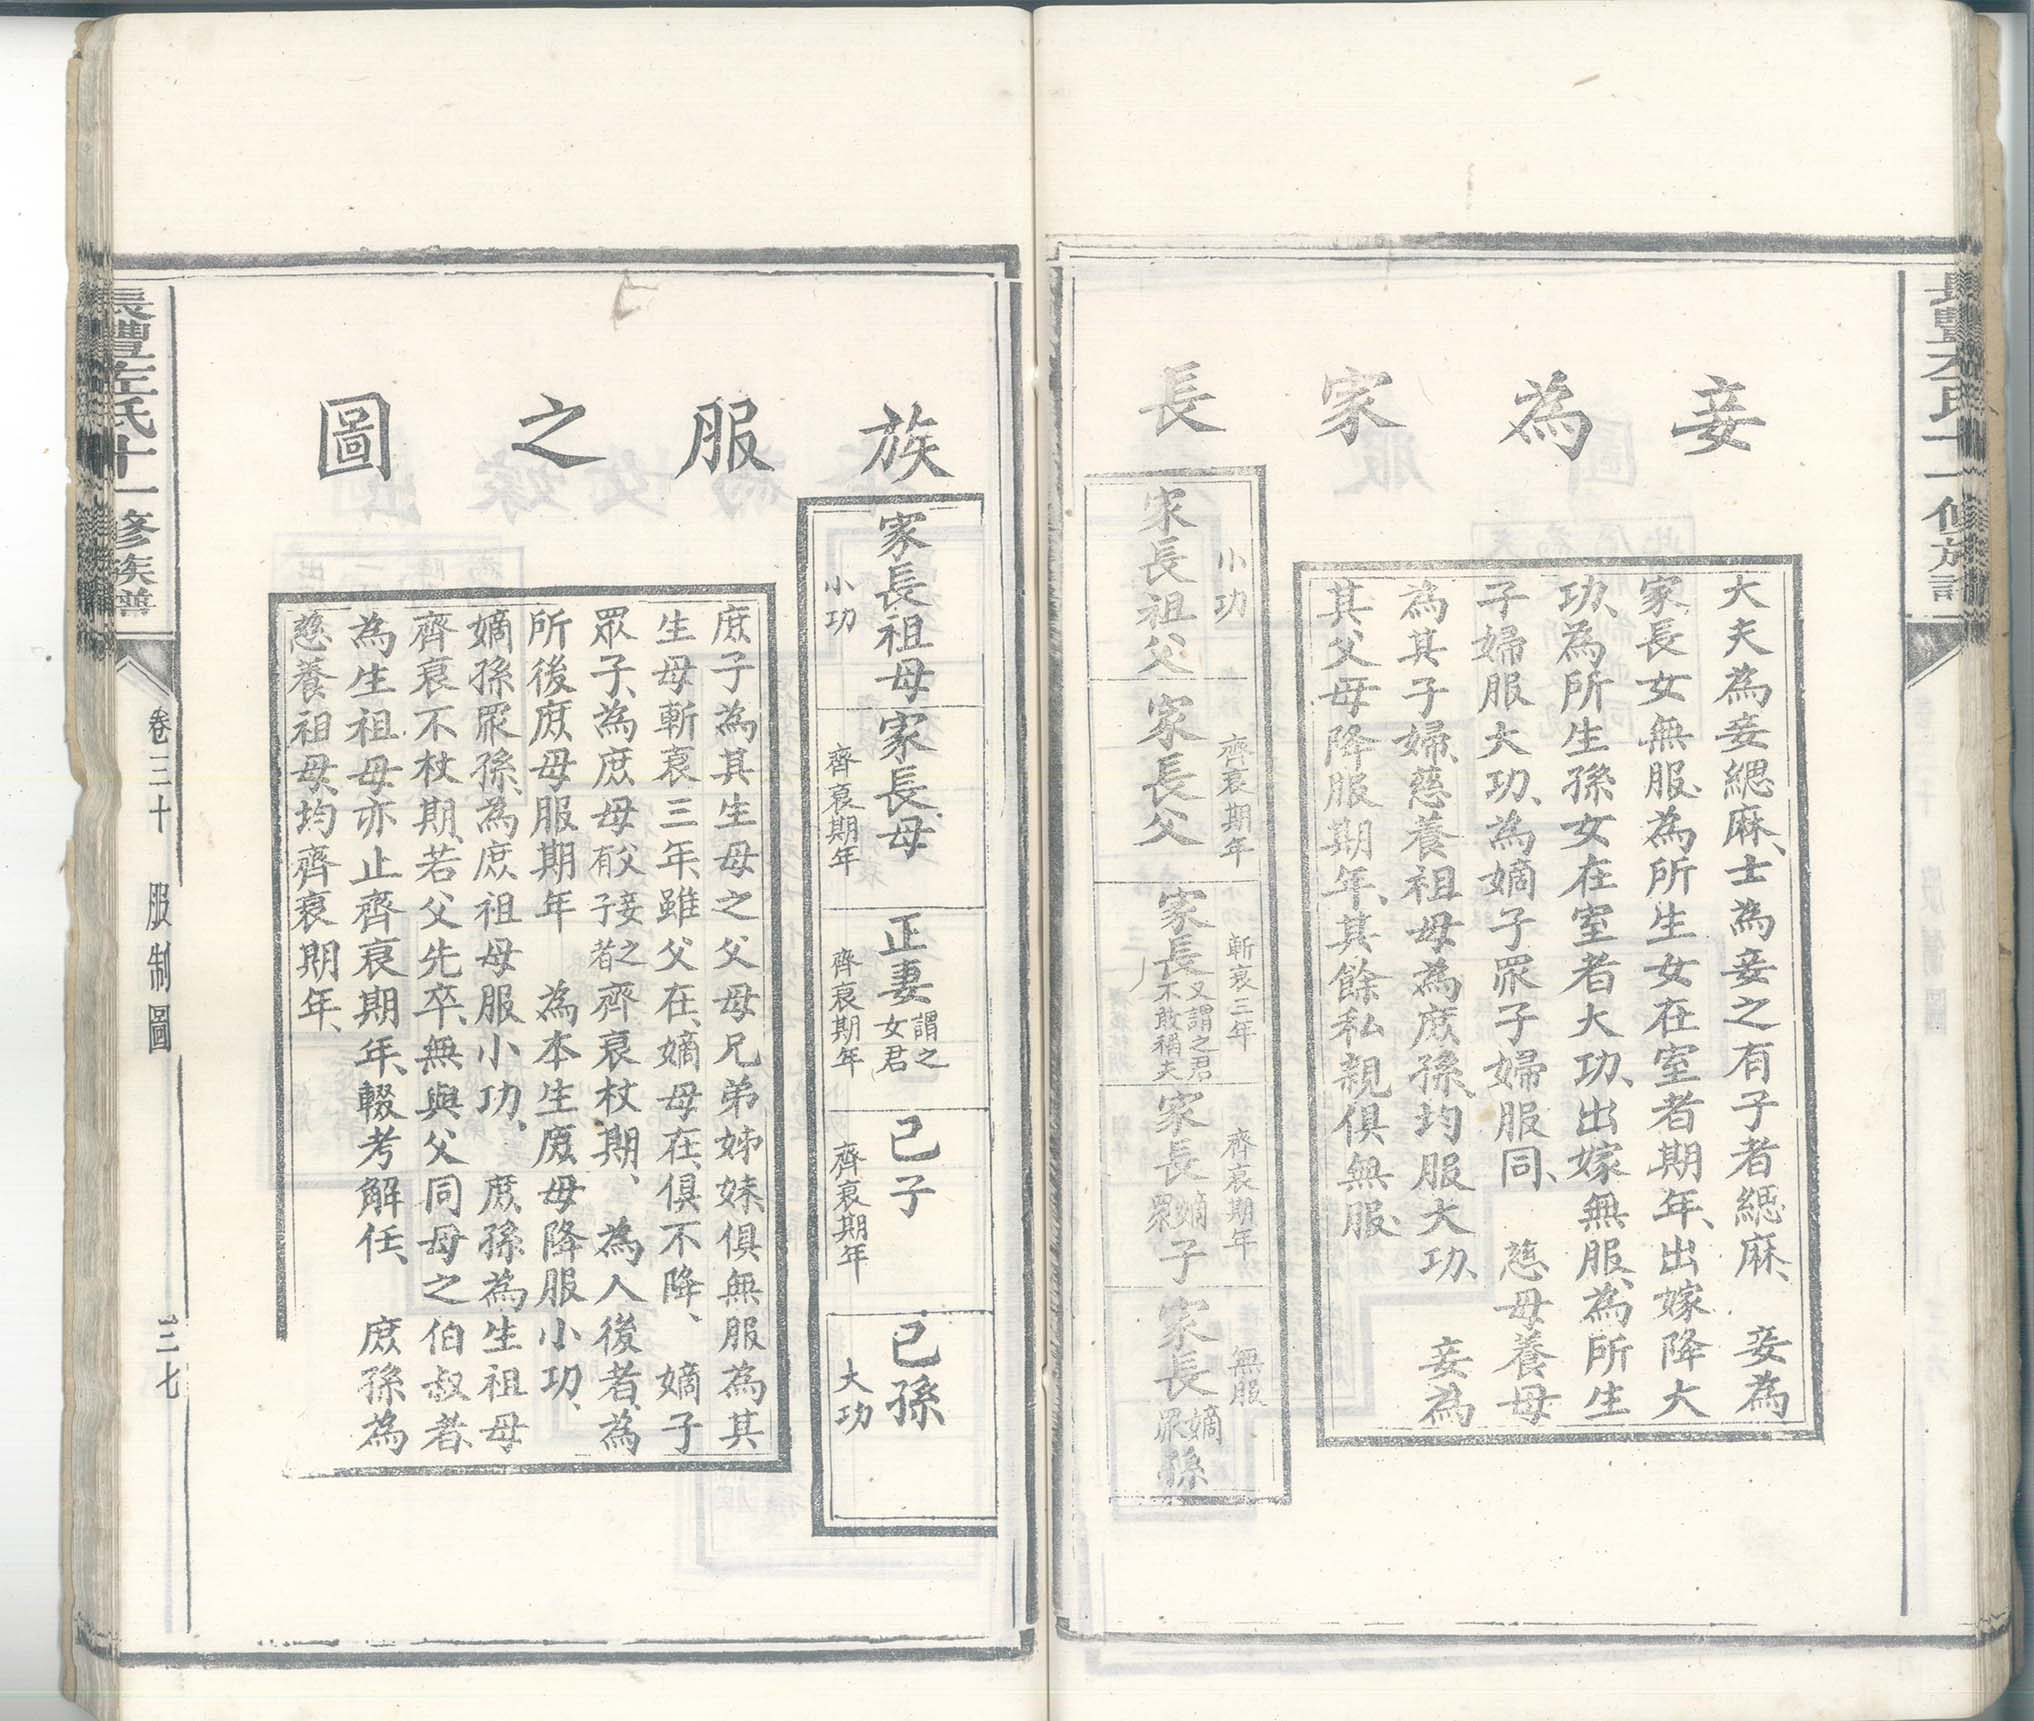 妾為家長
大夫為妾緦麻、士為妾之有子者緦麻、　妾為
家長女無服、為所生女在室者期年、出嫁降大
功、為所生孫女在室者大功、出嫁無服、為所生
子婦服大功、為嫡子眾子婦服同、　慈母養母
為其子婦、慈養祖母為庶孫、均服大功、　妾為
其父母降服期年、其餘私親俱無服、
小功
家長祖父
齊衰期年
家長父
斬衰三年
家長又謂之君
不敢稱夫
齊衰期年
家長嫡眾子
無服
家長嫡眾孫
族服之圖
家長祖母
小功
家長母
齊衰期年
正妻謂之
女君
齊衰期年
己子
齊衰期年
己孫
大功
庶子為其生母之父母兄弟姊妹俱無服為其
生母斬衰三年、雖父在、嫡母在、俱不降、　嫡子
眾子、為庶母父妾之有子者齊衰杖期、　為人後者、為
所後庶母服期年　為本生庶母降服小功、
嫡孫眾孫、為庶祖母服小功、　庶孫為生祖母
齊衰不杖期、若父先卒、無與父同母之伯叔者、
為生祖母亦止齊衰期年、輟考解任、　庶孫為
慈養祖母、均齊衰期年、
長豐左氏十一修族譜
卷三十　服制圖
三七